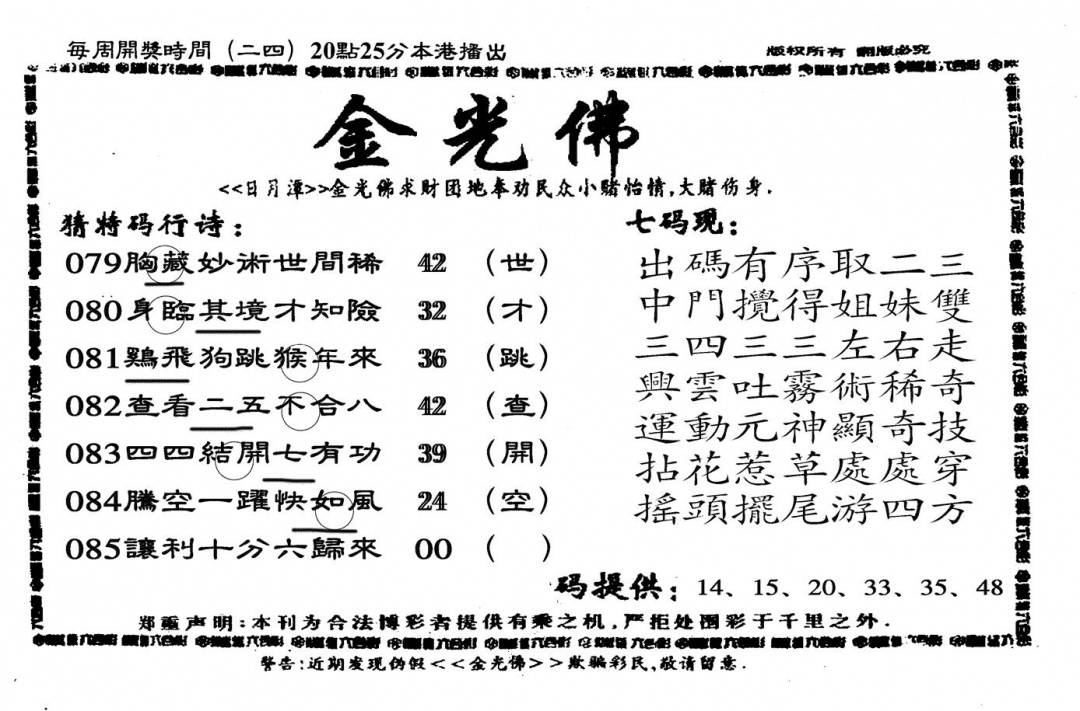 每周開獎時間（二四）20點25分本港播出
版权所有 翻版必究
金光佛
<<日月潭>>金光佛求财团地奉劝民众小赌怡情,大赌伤身.
猜特码行诗：
079胸藏妙術世間稀 42 （世）
080身臨其境才知險 32 （才）
081鷄飛狗跳猴年來 36 （跳）
082查看二五不合八 42 （查）
083四四結開七有功 39 （開）
084騰空一躍快如風 24 （空）
085讓利十分六歸來 00 （ ）
七码现：
出碼有序取二三
中門攪得姐妹雙
三四三三左右走
興雲吐霧術稀奇
運動元神顯奇技
拈花惹草處處穿
搖頭擺尾游四方
码提供：14、15、20、33、35、48
郑重声明:本刊为合法博彩者提供有乘之机,严拒处围彩于千里之外.
警告:近期发现伪假<<金光佛>>欺骗彩民,敬请留意.